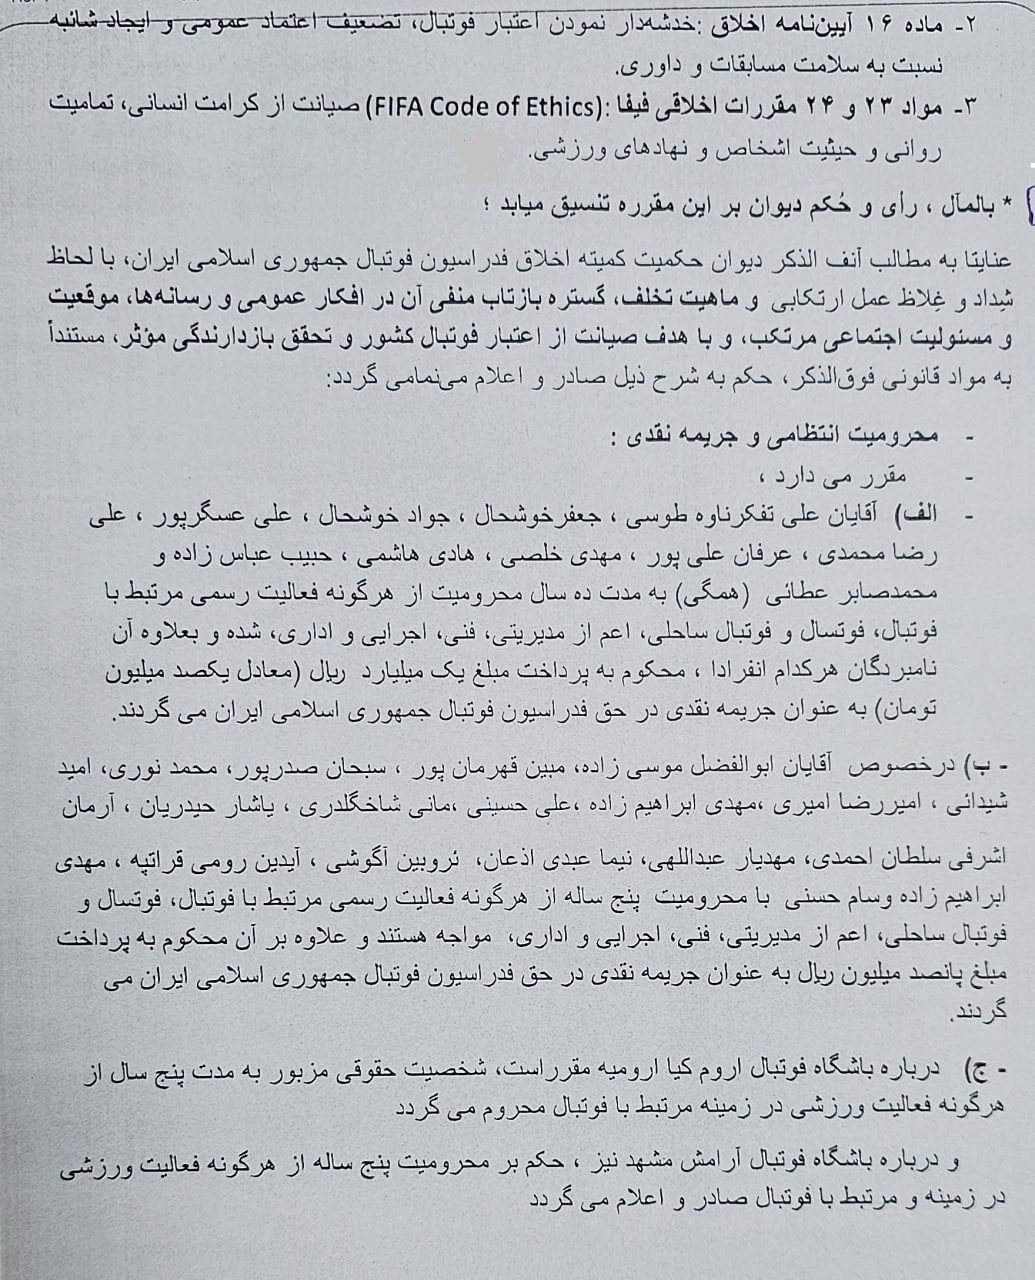 ۲- ماده ۱۶ آیین‌نامه اخلاق :خدشه‌دار نمودن اعتبار فوتبال، تضعیف اعتماد عمومی و ایجاد شائبه
نسبت به سلامت مسابقات و داوری.
۳- مواد ۲۳ و ۲۴ مقررات اخلاقی فیفا :(FIFA Code of Ethics) صیانت از کرامت انسانی، تمامیت
روانی و حیثیت اشخاص و نهادهای ورزشی.
* بالمآل ، رأی و حُکم دیوان بر این مقرره تنسیق میابد ؛
عنایتا به مطالب آنف الذکر دیوان حکمیت کمیته اخلاق فدراسیون فوتبال جمهوری اسلامی ایران، با لحاظ
شِداد و غِلاظ عمل ارتکابی و ماهیت تخلف، گستره بازتاب منفی آن در افکار عمومی و رسانه‌ها، موقعیت
و مسئولیت اجتماعی مرتکب، و با هدف صیانت از اعتبار فوتبال کشور و تحقق بازدارندگی مؤثر، مستنداً
به مواد قانونی فوق‌الذکر، حکم به شرح ذیل صادر و اعلام می‌نمامی گردد:
- محرومیت انتظامی و جریمه نقدی :
- مقرر می دارد ،
- الف) آقایان علی تفکرناوه طوسی ، جعفرخوشحال ، جواد خوشحال ، علی عسگرپور ، علی
رضا محمدی ، عرفان علی پور ، مهدی خلصی ، هادی هاشمی ، حبیب عباس زاده و
محمدصابر عطائی (همگی) به مدت ده سال محرومیت از هرگونه فعالیت رسمی مرتبط با
فوتبال، فوتسال و فوتبال ساحلی، اعم از مدیریتی، فنی، اجرایی و اداری، شده و بعلاوه آن
نامبردگان هرکدام انفرادا ، محکوم به پرداخت مبلغ یک میلیارد ریال (معادل یکصد میلیون
تومان) به عنوان جریمه نقدی در حق فدراسیون فوتبال جمهوری اسلامی ایران می گردند.
- ب) درخصوص آقایان ابوالفضل موسی زاده، مبین قهرمان پور ، سبحان صدرپور، محمد نوری، امید
شیدائی ، امیررضا امیری ،مهدی ابراهیم زاده ،علی حسینی ،مانی شاخگلدری ، یاشار حیدریان ، آرمان
اشرفی سلطان احمدی، مهدیار عبداللهی، نیما عبدی اذعان، ئروبین آگوشی ، آیدین رومی قراتپه ، مهدی
ابراهیم زاده وسام حسنی با محرومیت پنج ساله از هرگونه فعالیت رسمی مرتبط با فوتبال، فوتسال و
فوتبال ساحلی، اعم از مدیریتی، فنی، اجرایی و اداری، مواجه هستند و علاوه بر آن محکوم به پرداخت
مبلغ پانصد میلیون ریال به عنوان جریمه نقدی در حق فدراسیون فوتبال جمهوری اسلامی ایران می
گردند.
- ج) درباره باشگاه فوتبال اروم کیا ارومیه مقرراست، شخصیت حقوقی مزبور به مدت پنج سال از
هرگونه فعالیت ورزشی در زمینه مرتبط با فوتبال محروم می گردد
و درباره باشگاه فوتبال آرامش مشهد نیز ، حکم بر محرومیت پنج ساله از هرگونه فعالیت ورزشی
در زمینه و مرتبط با فوتبال صادر و اعلام می گردد